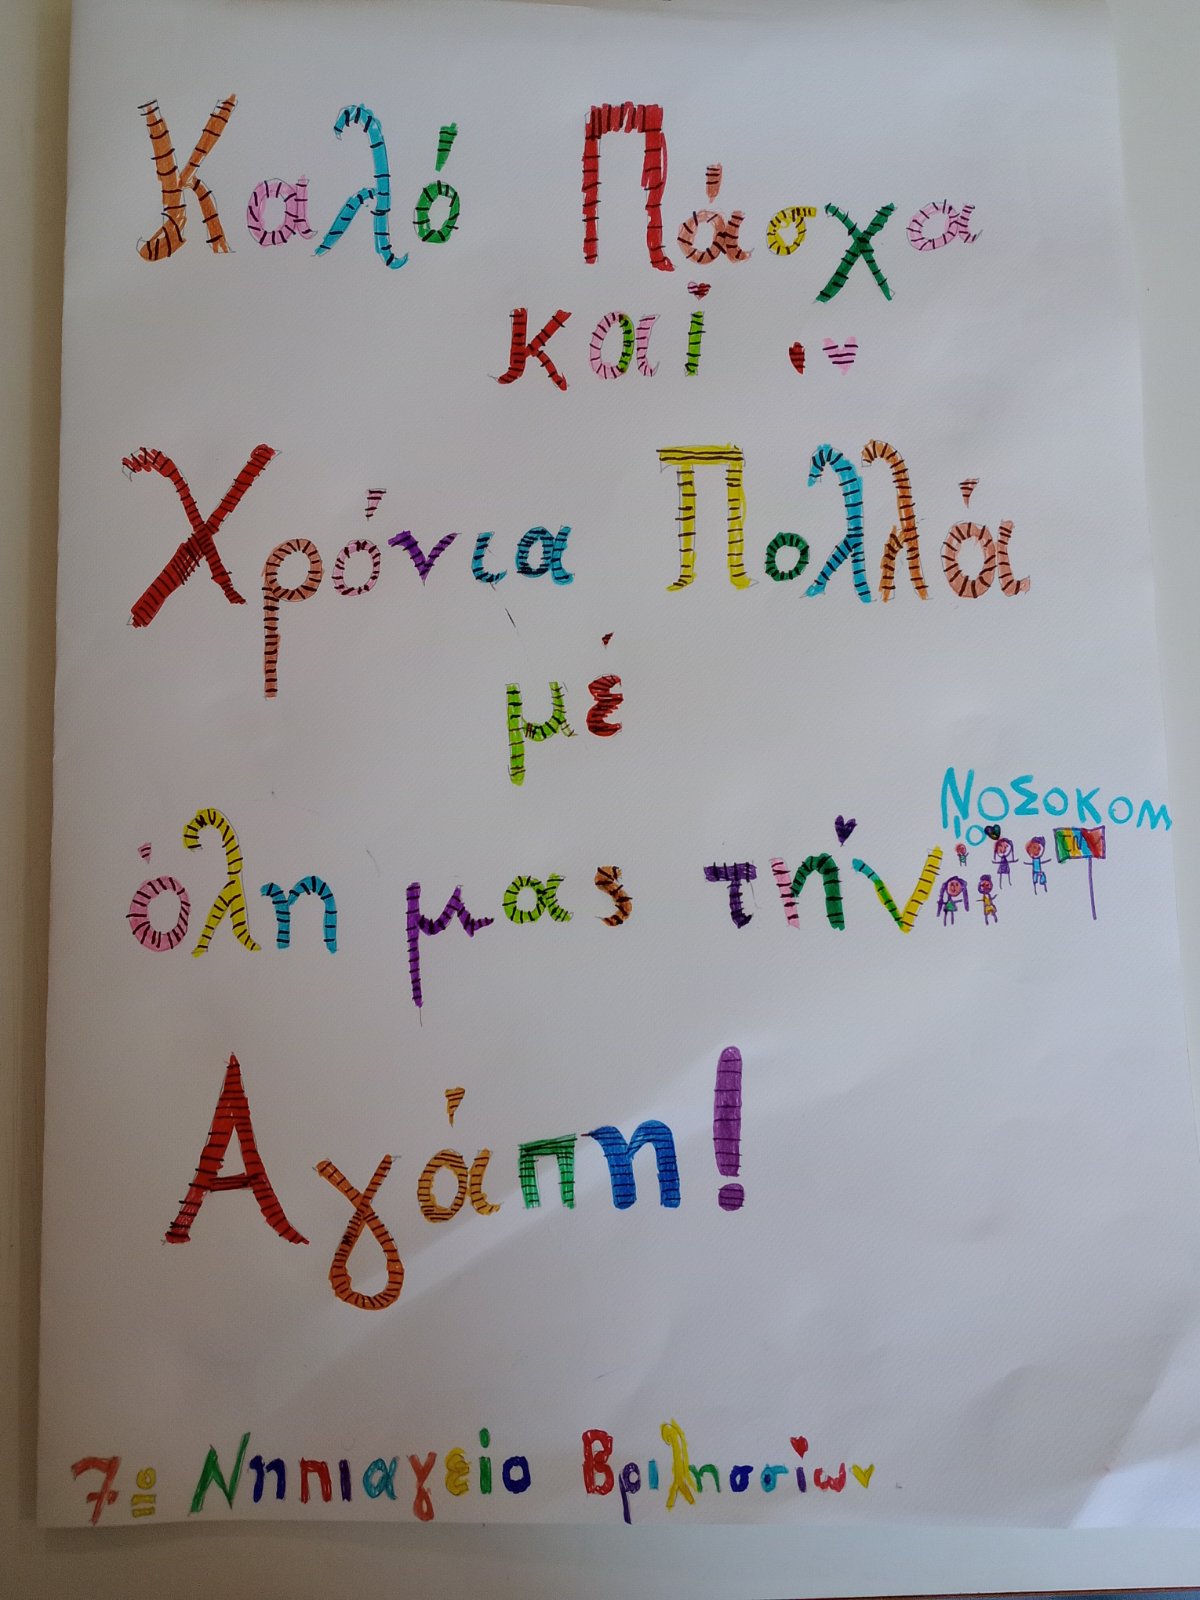 Καλό Πάσχα
και
Χρόνια Πολλά
μέ
όλη μας τήν
ΝΟΣΟΚΟΜ
ΙΟ
Αγάπη!
7ιο Νηπιαγείο Βριλησσίων